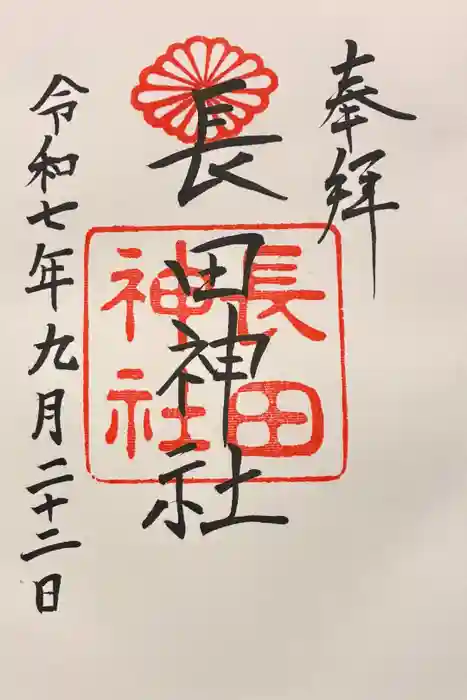 奉拝
長田神社
長田
神社
令和七年九月二十二日